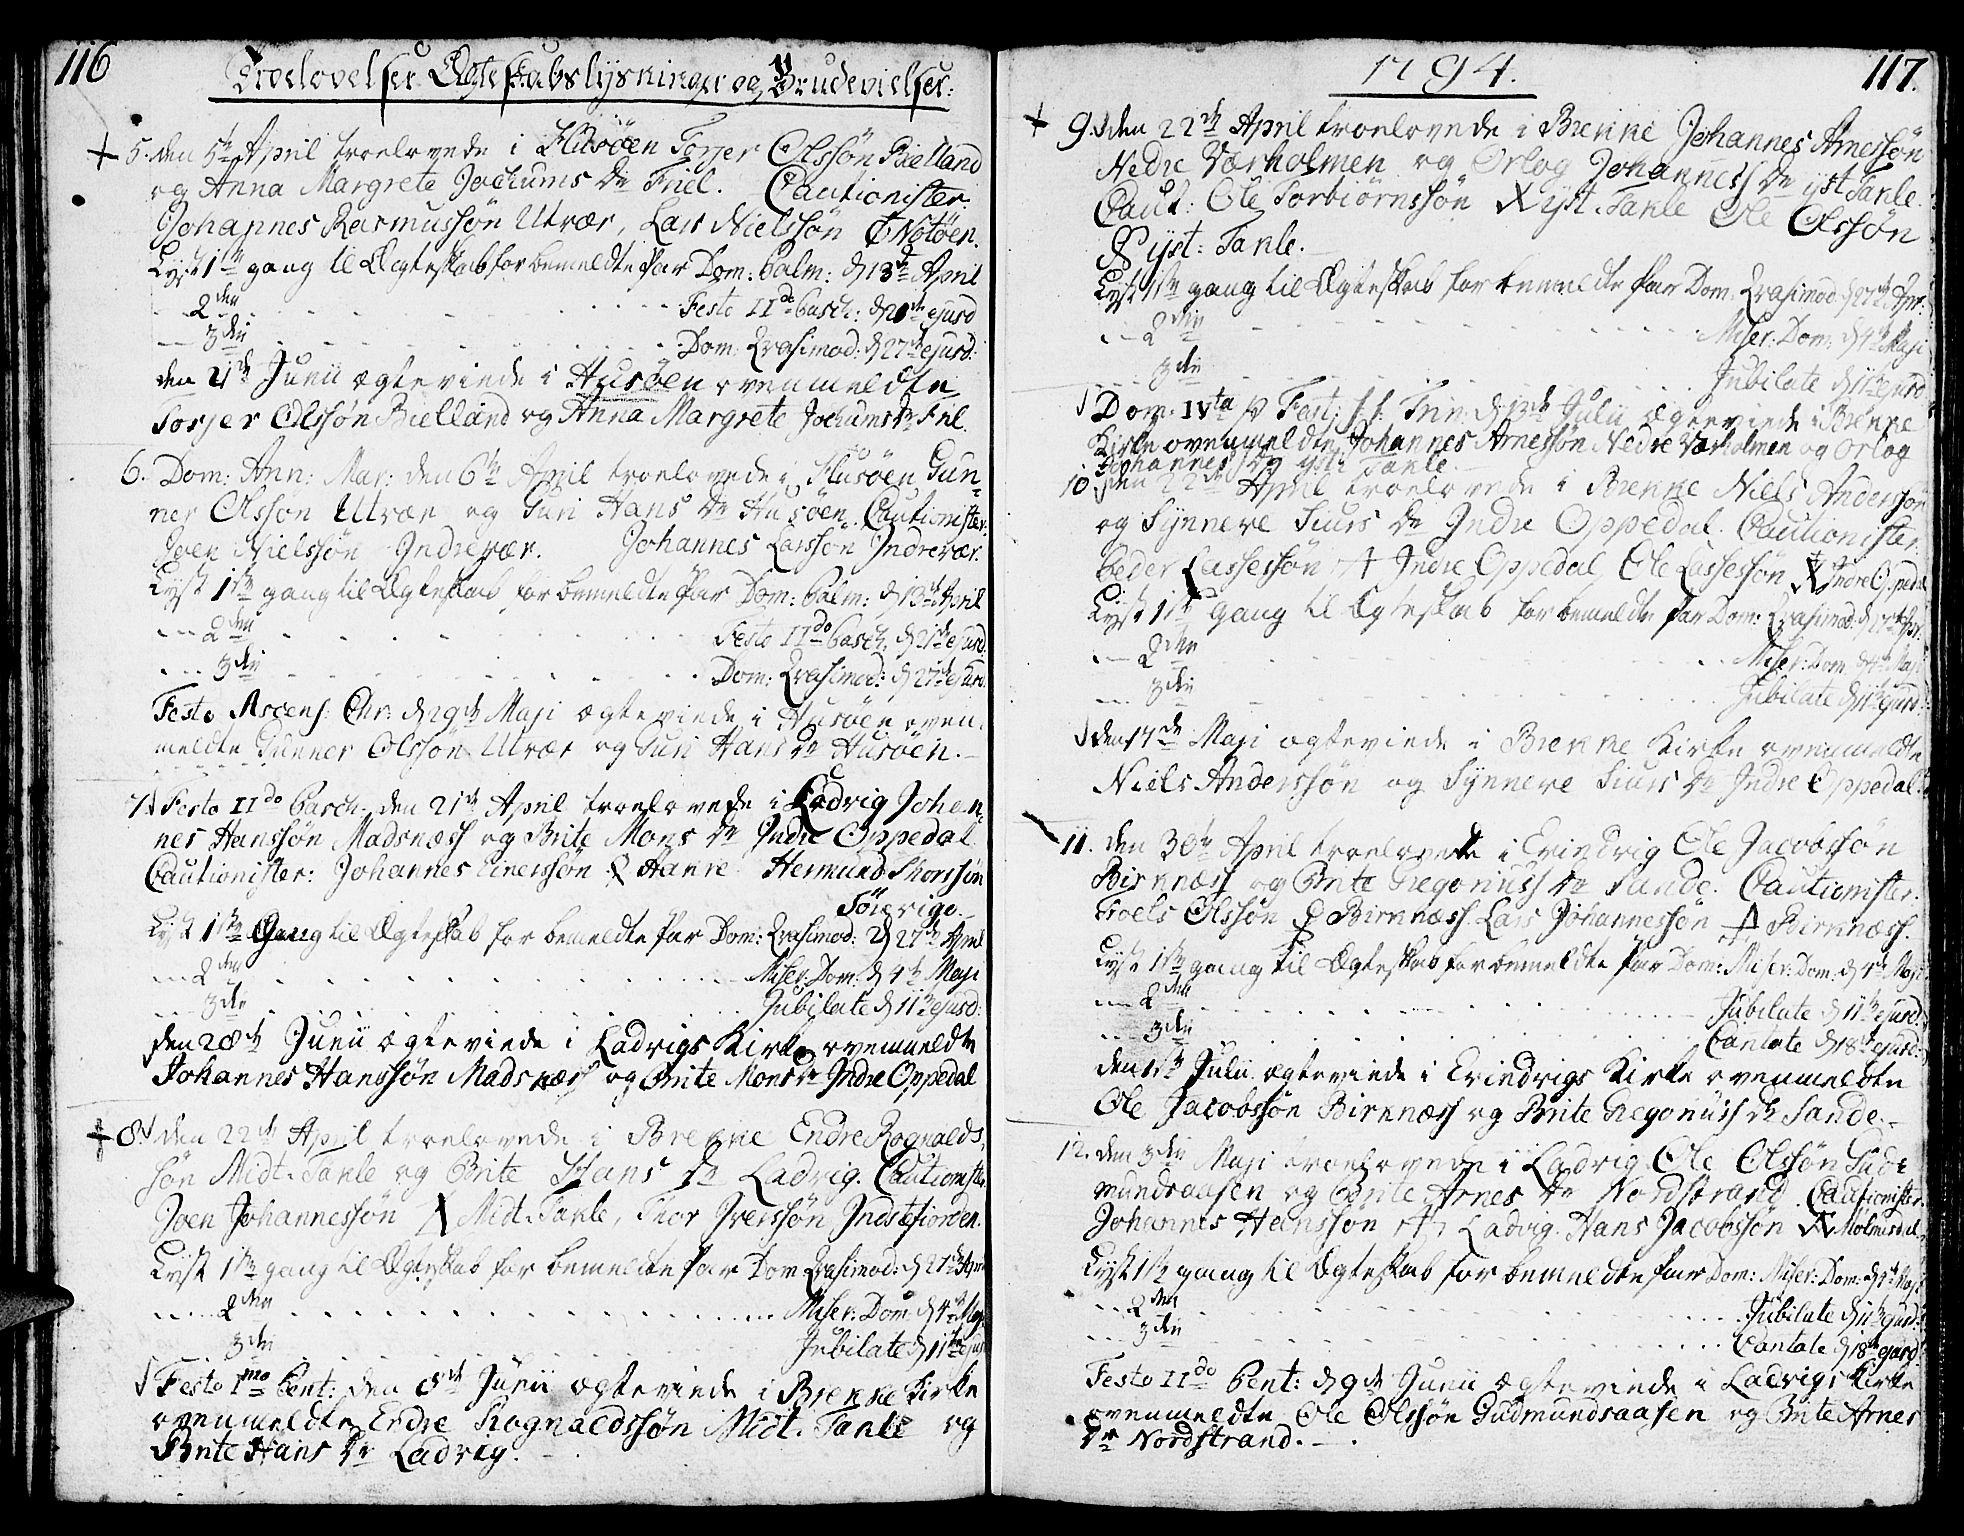 116
Troelovelser Ægteskabslysninger og Brudevielser:
5. den 5te April troelovede i Husöen Torjer Olssön Bielland
og Anna Margrete Jochums Dr Friel. Cautionister.
Johannes Rasmussön Utvær, Lars Nielssön Notöen.
Lyst 1ste gang til Ægteskab for bemeldte Par Dom: Palm: d 13de April
2den Festo IIdo Pasch: d 21de ejusd
3die Dom: Qvasimod: d 27de ejusd:
den 21de Junii ægteviede i Husöen ovenmeldte
Torjer Olssön Bielland og Anna Margrete Jochums Dr Friel.
6. Dom: Ann: Mar: den 6te April troelovede i Husöen Gun-
ner Olsson Utvær og Guri Hans Dr Husöen. Cautionister:
Joen Nielssön Indrevær. Johannes Larssön Indrevær.
Lyst 1ste gang til Ægteskab for bemeldte Par Dom: Palm: d 13de April
2den Festo IIdo Pasch. d 21de ejusd.
3die Dom: Qvasimod: d 27de ejusd.
Festo Ascens: Chr: d 29de Maji ægteviede i Husöen oven-
meldte Gunner Olssön Utvær og Guri Hans Dr Husöen.
7. Festo IIdo Pasch. den 21de April troelovede i Ladvig Johan-
nes Hanssön Madsnæss og Brite Mons Dr Indre Oppedal
Cautionister: Johannes Einerssön Hanre Hermund Thorssön
Söreride.
Lyst 1ste Gang til Ægteskab for bemeldte Par Dom: Qvasimod: d 27de April
2den Miser: Dom: d 4de Maji
3die Jubilate d 11te ejusd:
den 28de Junii ægteviede i Ladvigs Kirke ovenmeldte
Johannes Hanssön Madsnæss og Brite Mons Dr Indre Oppedal
8. den 22de April troelovede i Brekke Endre Rognalds-
sön Midt-Takle og Brite Hans Dr Ladvig. Cautionister
Joen Johannessön Midt-Takle, Thor Iverssön Indstefiorden.
Lyst 1ste gang til Ægteskab for bemeldte Par Dom Qvasimod: d 27de April
2den Miser: Dom: d 4de Maj
3die Jubilate d 11te ejus
Festo Imo Pent: den 8de Junii ægteviede i Brekke Kirke
ovenmeldte Endre Rognaldssön Midt-Takle og
Brite Hans Dr Ladvig.
1794.
117.
9. den 22de April troelovede i Brekke Johannes Arnessön
Nedre Værholmen og Orlog Johanness Dr yst Takle.
Caut: Ole Torbiörnssön yst-Takle Ole Olssön
yst: Takle.
Lyst 1ste gang til Ægteskab for bemeldte Par Dom. Qvasimod. d 27de Apr:
2den Miser: Dom: d 4de Maji
3die Jubilate d 11te ejusd
Dom. IVta p Fest: S.S. Trin: d 13de Julii ægteviede i Brekke
Kirke ovenmeldte Johannes Arnessön Nedre Værholmen og Orlog
Johanness Dr yst: Takle.
10. den 22de April troelovede i Brekke Niels Anderssön
og Synneve Siurs Dr Indre Oppedal. Cautionister.
Peder Lassessön Indre Oppedal, Ole Lassessön Indre Oppedal
Lyst 1ste gang til Ægteskab for bemeldte Par Dom: Qvasimod: d 27de Apr.
2den Miser: Dom d 4de Maji
3die Jubilate d 11te ejusd:
den 17de Maji ægteviede i Brekke Kirke ovenmeldte
Niels Anderssön og Synneve Siurs Dr Indre Oppedal.
11. den 30te April troelovede i Evindvig Ole Jacobssön
Birknæss og Brite Gregoriuss Dr Sande. Cautionister.
Troels Olssön Birknæss. Lars Johannessön Birknæss.
Lyst 1ste gang til Ægteskab for bemeldte Par Dom: Miser: Dom: d 4de Maji
2den Jubilate d 11te ejusd:
3die Cantate d 18de ejusd:
den 1ste Julii ægteviede i Evindvigs Kirke ovenmeldte
Ole Jacobssön Birknæss og Brite Gregoriuss Dr Sande.
12. den 3die Maji troelovede i Ladvig Ole Olssön Gud-
mundsaasen og Brite Arnes Dr Nordstrand. Cautionister.
Johannes Hanssön Ladvig. Hans Jacobssön Molmesdal.
Lyst 1ste gang til Ægteskab for bemeldte Par Dom: Miser: Dom: d 4de Maji
2den Jubilate d 11te ejusd:
3die Cantate d 18de ejusd:
Festo IIdo Pent: d 9de Junii ægteviede i Ladvigs Kirke
ovenmeldte Ole Olssön Gudmundsaasen og Brite Arnes
Dr Nordstrand.